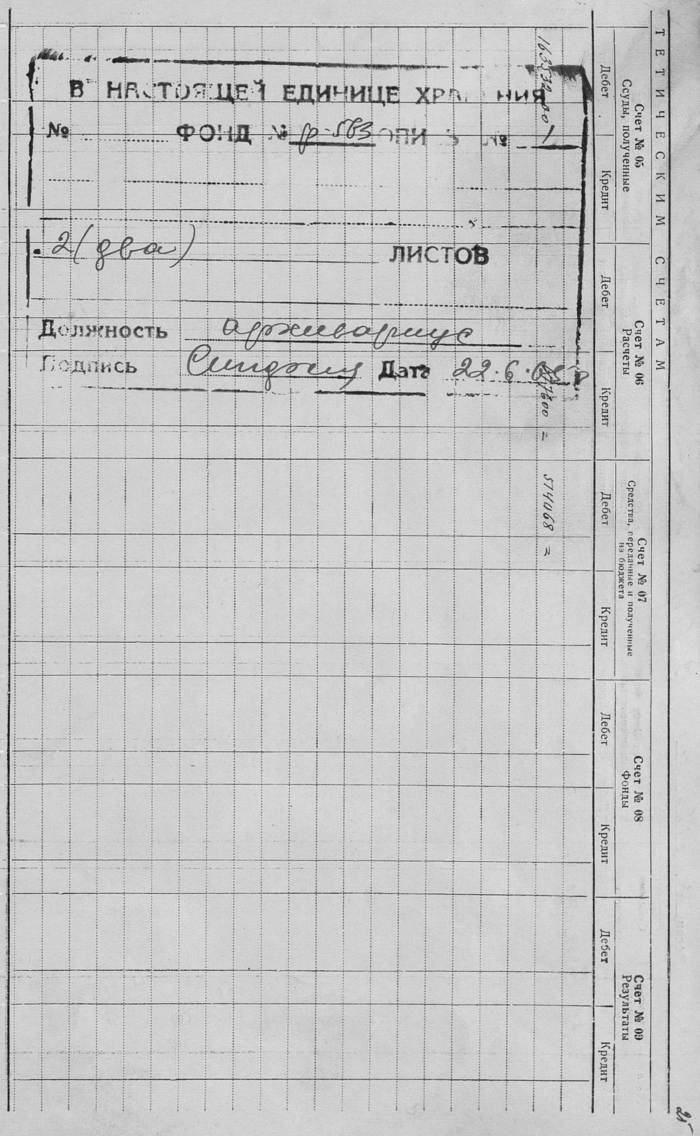 В НАСТОЯЩЕЙ ЕДИНИЦЕ ХРАНЕНИЯ
№ ФОНД № р-563 ОПИСЬ № 1
2 (два) ЛИСТОВ
Должность архивариус
Подпись Дата 22.6.
ТЕТИЧЕСКИМ СЧЕТАМ
Счет № 05
Ссуды, полученные
Дебет
Кредит
Счет № 06
Расчеты
Дебет
Кредит
Счет № 07
Средства, переданные и полученные
из бюджета
Дебет
Кредит
Счет № 08
Фонды
Дебет
Кредит
Счет № 09
Результаты
Дебет
Кредит
514068 =